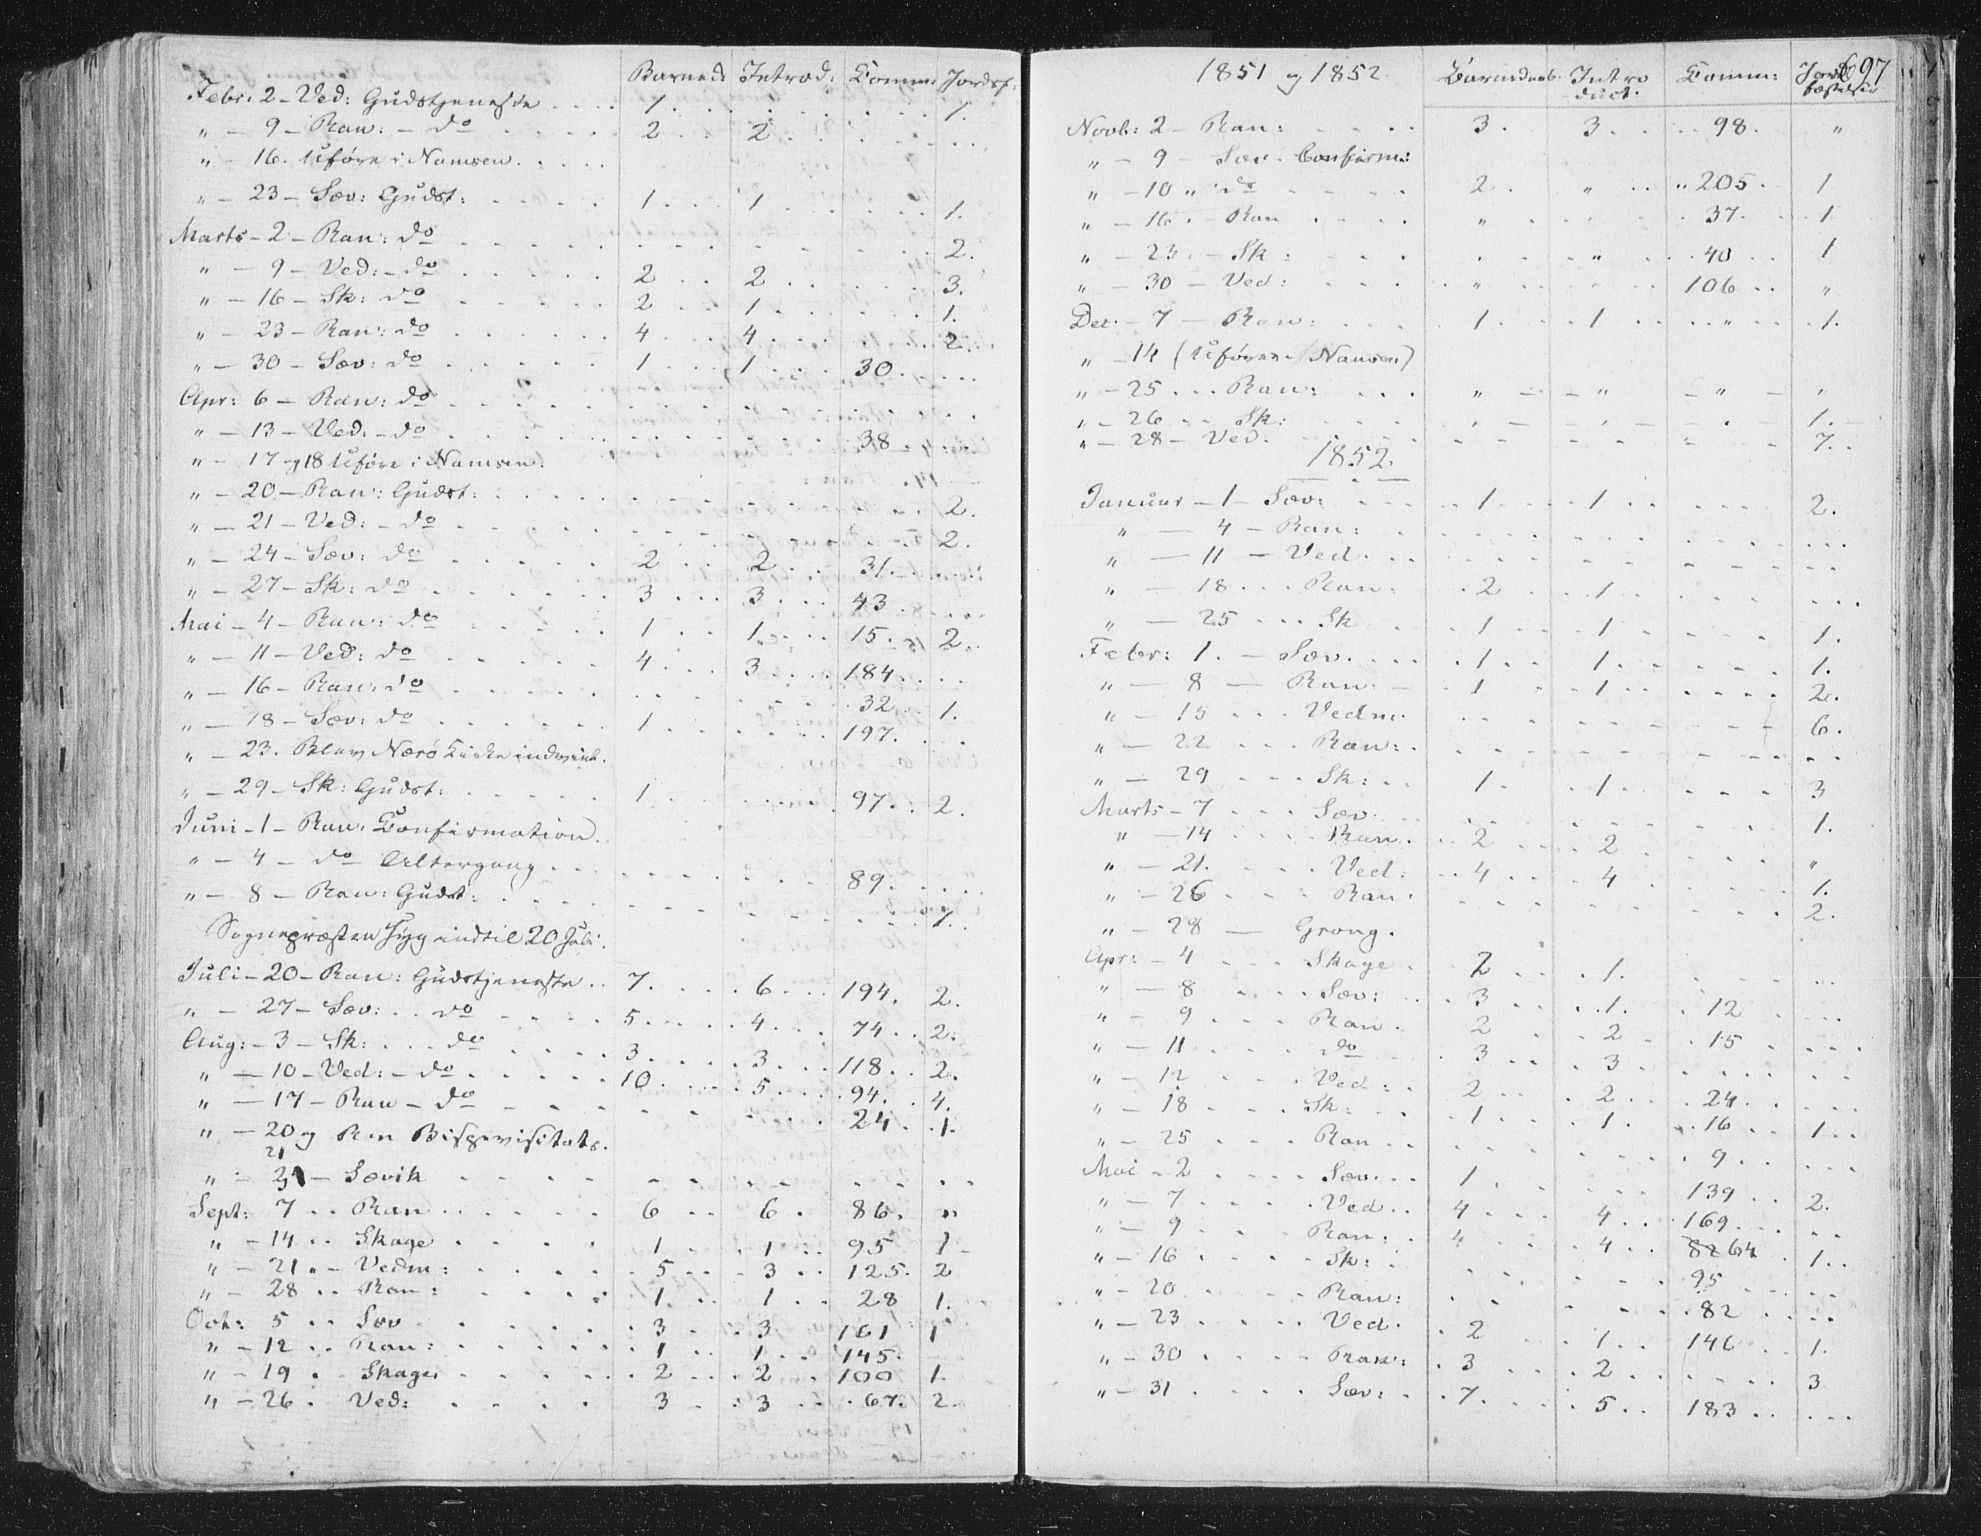 Barned: Introd: Comm: Jordsf.
Febr: 2 - Ved: Gudstjeneste . . . . 1. . . . . . . . . 1.
" - 9 - Ran: - do . . . . . 2 . . 2 . . . . . . .
" - 16. Uføre i Namsen . . . .
" - 23 - Sæv: Gudst: . . . . . 1 . . . 1 . . . . . . 1.
Marts - 2 - Ran: do . . . . . . . . . . . . 2.
" - 9 - Ved: - do . . . . . 2 . . 2 . . . . . 3.
" - 16 - Sk: do . . . . . 2 . . 1 . . . . . . 1.
" - 23 - Ran: do . . . . . 4 . . 4 . . . . . . 2.
" - 30 - Sæv: do . . . . . 1 . . . 1 . . . 30 . . . .
Apr: 6 - Ran: do . . . . . . . . . . . .
" - 13 - Ved. - do . . . . . . . . . . 38 . . .
" - 17 og 18 Uføre i Namsen.
" - 20 - Ran: Gudst: . . . . . . . . . . . 2.
" - 21 - Ved: - do . . . . . . . . . . . . 2.
" - 24 - Sæv: do . . . . . 2 . . . 2 . . . 31 . . . .
" - 27 - Sk: do . . . . . . 3 . . . 3 . . . 43 . . . .
Mai - 4 - Ran: do . . . . . 1 . . . 1 . . . . 15. . . 2.
" - 11 - Ved: do . . . . . 4 . . . 3 . . . . 184 . . . .
" - 16 - Ran: do . . . . . . . . . . . 32 . . 1.
" - 18 - Sæv: do . . . . . . 1 . . . . . . . 197. . . .
" - 23. Blev Nærø Kirke indviet.
" - 29 - Sk: Gudst: . . . . . 1 . . . . . . . 97. . . 2.
Juni - 1 - Ran. Confirmation.
" - 4 - do Altergang . . . . . . . . . . 89. . . . .
" - 8 - Ran: Gudst: . . . . . . . . . . . . 1.
Sognepræsten syg indtil 20 Juli.
Juli - 20 - Ran: Gudstjeneste . . 7. . . . . 6 . . . 194. . 2.
" - 27 - Sæv: . . do . . . . 5 . . . . 4 . . . 74 . . 2.
Aug: - 3 - Sk: . . . do . . . . 3 . . . . 3 . . . 118 . . 2.
" - 10 - Ved: - do . . . . . . 10 . . . . . 5 . . . . 94. . . 4.
" - 17 - Ran - do . . . . . . . . . . 24 . . 1.
" - 20 og 21 Ran Bispevisitats.
" - - Sævik . . . . . . . . . . . .
Sept: 7 . . Ran . . . . . . 6 . . 6 . 86. "
" - 14 . . Skage . . . . . 1 . . . 1 . . 95 1 -
" - 21 . - Vedm: . . . . . 5 . . . 3 . . 125. 2
" - 28 . . Ran: . . . . . 1 . . . 1 . . 28 1.
Oct: 5 . . Sæv . . . . . . . 3 . . . 3 . . . 161 1
" - 12 . . Ran: . . . . . . 1 . . . 1 . . . 145.
" - 19 . - Skage . . . . . . 2 . . . 2 . . 100 1.
" - 26 . Ved: . . . . . 3 . . . 3 . . . 67. 2.
1851 og 1852. Barnedaab. Introduct: Comm: Jordfæstelser 697
Novb: 2 - Ran: . . . . 3 . 3. . . . . 98. "
" - 9 - Sæv. Confirm:
" - 10 " do . . . . 2 . " . . " 205 . 1
" - 16 . - Ran . . . . " . . . . 37 . . 1
" - 23 . - Sk: . . . . . . " . . . 40 . . 1
" - 30 - Ved: . . . . " . . . . 106 . . "
Dec. - 7 - Ran: . . . . 1. . . 1 . . . . " . . . 1.
" - 14 (Uføre i Namsen)
" - 25 . . . Ran: . . . " - - " - " - "
" - 26 . . . Sk: . . . . " - - . - . - 1.
" - 28 - Ved. . . . . - - - - " - 7. .
1852.
Januar - 1 - Sæv: . . . . 1 . . . 1 . . . . . 2.
" - 4 - Ran: . . . . . . . . . . . .
" - 11 - Ved. . . . . . . . . . . . .
" - 18 . . . Ran: . . 2 . . . 1 . . . . . . .
" - 25 . . . Sk . . . 1 . . . 1 . . . . . 1.
Febr: 1. - Sæv. . . . . 1 . . . 1 . . . . . 1.
" - 8 - Ran: - . 1 . . . 1 . . . . . . 2.
" - 15 . . . Vedm. . . . . . . . . . . 6.
" - 22 . . . Ran: . . . . . . . . . . . .
" - 29 . . . Sk: . . 1. . . . 1. . . . . . 3
Marts - 7 . . . Sæv. . . . . . . . . . . 1.
" - 14 . . . Ran. . . 2 . . . 2 . . . . . "
" - 21. . . . . Ved: . . 4 . . . 4 . . . . . . 1.
" - 26 . . . . Ran. . . . . . . . . . . 2.
" - 28 - Grong.
Apr: - 4 . . . Skage . 2 . . 1. . . . . . . .
" - 8 . . . . Sæv: . . 3 . . . 1. . . . 12 . . . .
" - 9 . . . . Ran . 2 . . . 2 . . . 15 . . . . .
" - 11 . . . . do . 3 . . . 3 . . . . . . .
" - 12 . . . . Ved: . . 2 . . . 2 . . . 24 . . . .
" - 18 . . . Sk: . . . . 1 . . . 1. . . . 16 . . 1 . .
" - 25 . . . . Ran . . . . . . . . 9 . . . .
Mai - 2 . . . . . Sæv. . . 1 . . . . . . 139 . . 2.
" - 7 . . . . . Ved . . 4 . . . 4 . . 169 . . . .
" - 9 . . . . Ran: . 4 . . . 4 . . 82 64 . . 1 . .
" - 16 . . . . . Sk: . . . . . . . 95 . . . .
" - 20 . . . . Ran: . . . . . . . 82 . . . .
" - 23 . . . . . Ved. . 2 . . . 1 . . . 146 . . . 1.
" - 30 . . . . . Ran: . 3 . . . 2 . . . . . . 3
" - 31 . . . . . Sæv: . . 7. . . . . 5 . . 183 . . . . .